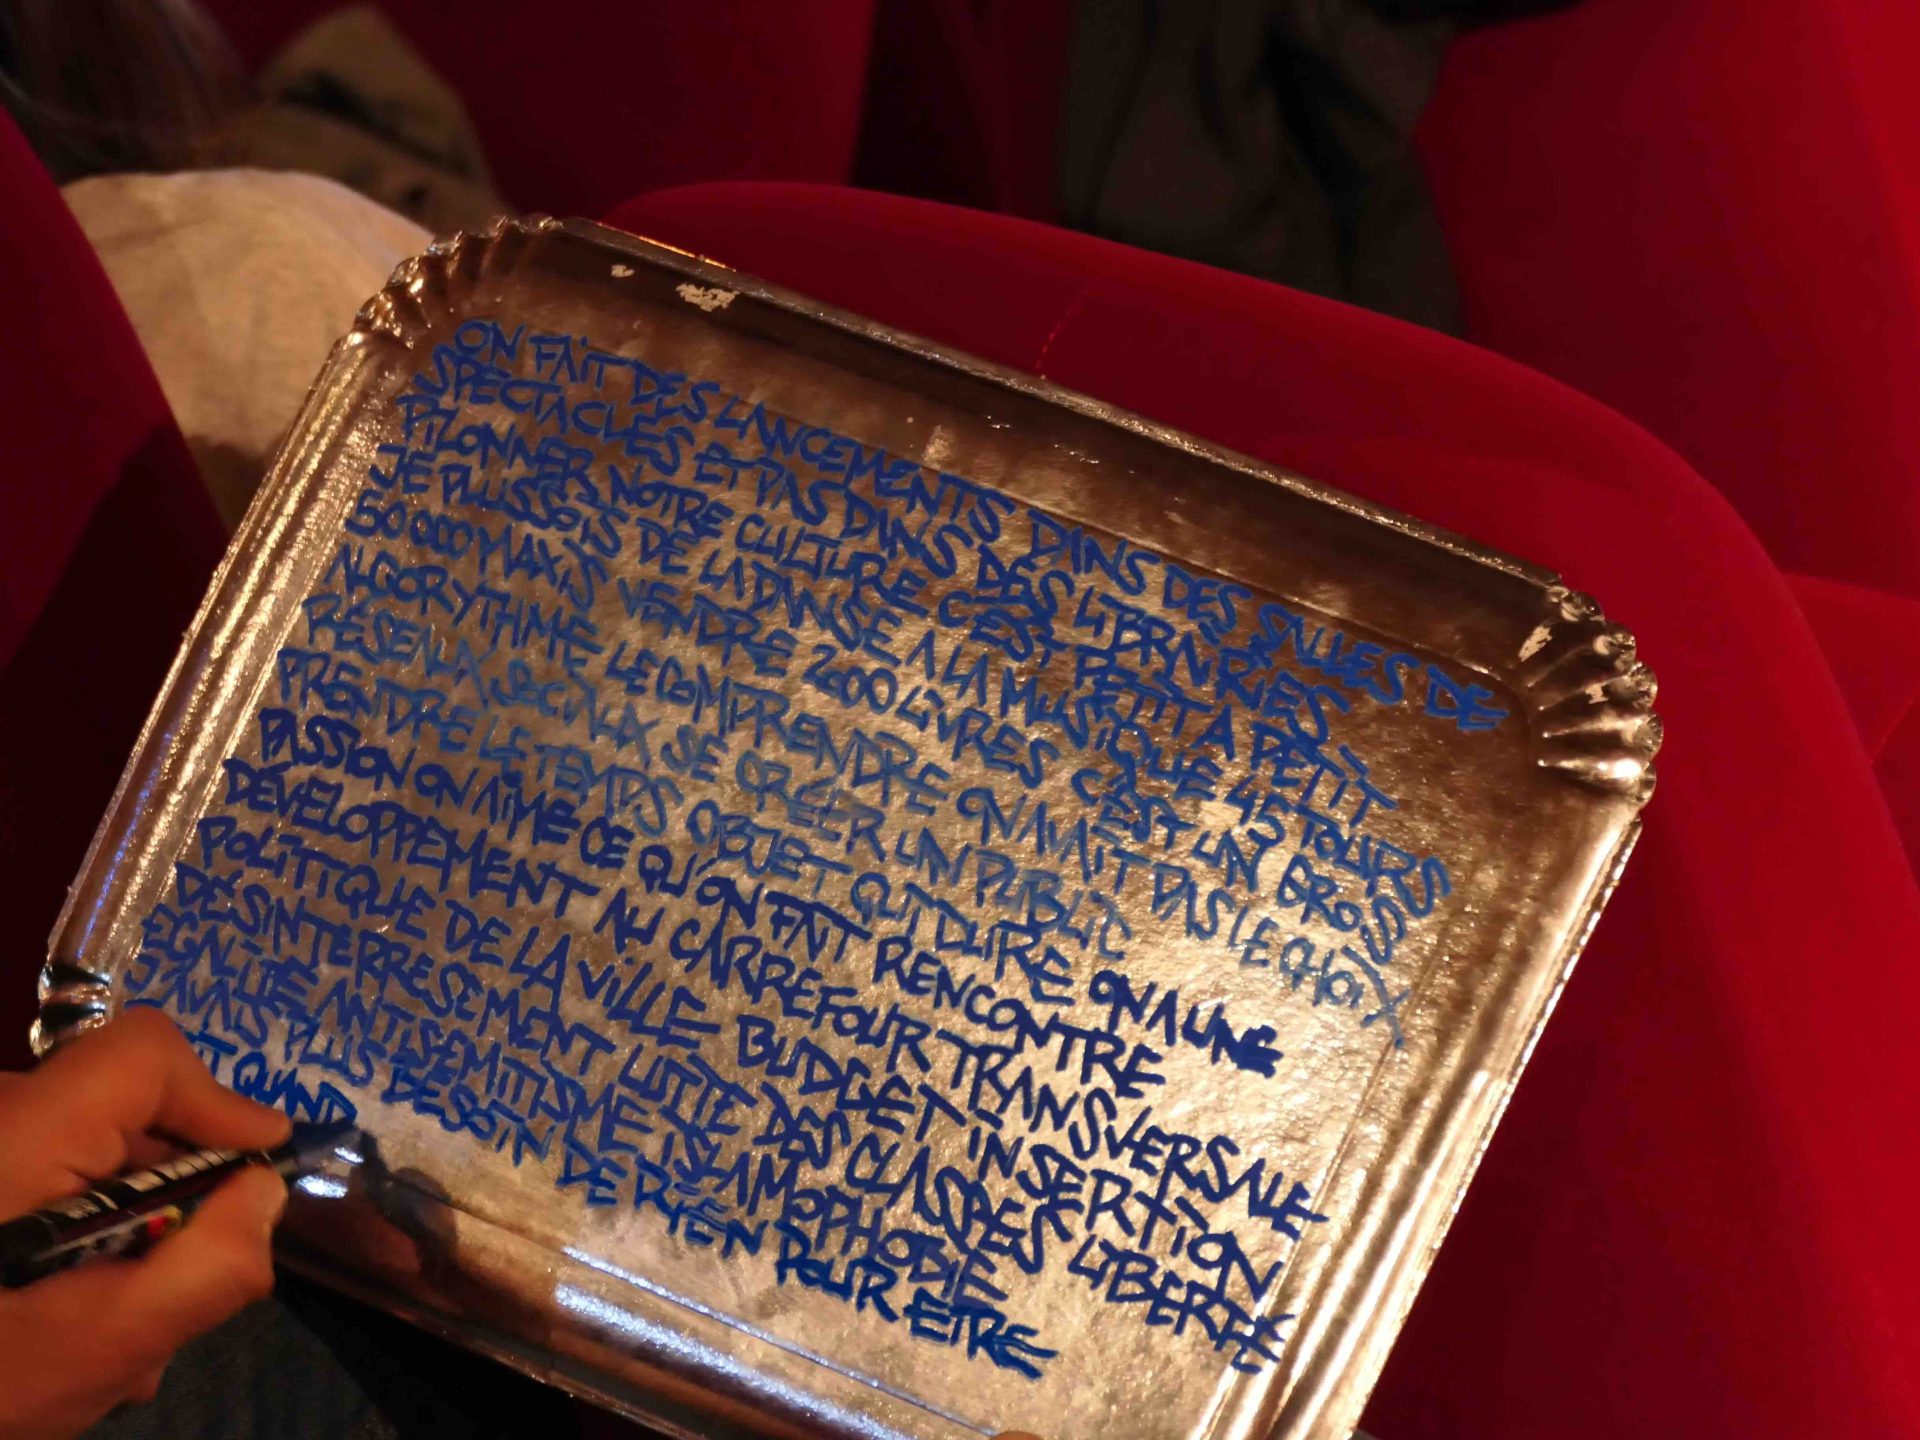 ON FAIT DES LANCEMENTS DANS DES SALLES DE
SPECTACLES ET PAS DANS DES LIBRAIRIES
PILONNER NOTRE CULTURE C'EST PETIT A PETIT
JE PLUSSOIS DE LA DANSE A LA MUSIQUE 45 TOURS
50 000 MAXIS VENDRE 2000 LIVRES C'EST UN GROS
ALGORYTHME LE COMPRENDRE ON AVAIT PAS LE CHOIX
RÉSEAUX SOCIAUX SE CRÉER UN PUBLIC
PRENDRE LE TEMPS OBJET CULTURE ON A UNE
PASSION ON AIME CE QU'ON FAIT RENCONTRE
DÉVELOPPEMENT AU CARREFOUR TRANSVERSALE
POLITIQUE DE LA VILLE BUDGET INSERTION
DÉSINTERRESSEMENT LUTTE DES CLASSES LIBERTÉ
EGALITÉ ANTISEMITISME ISLAMOPHOBIE
J'AVAIS PLUS BESOIN DE RIEN POUR ETRE
QUAND